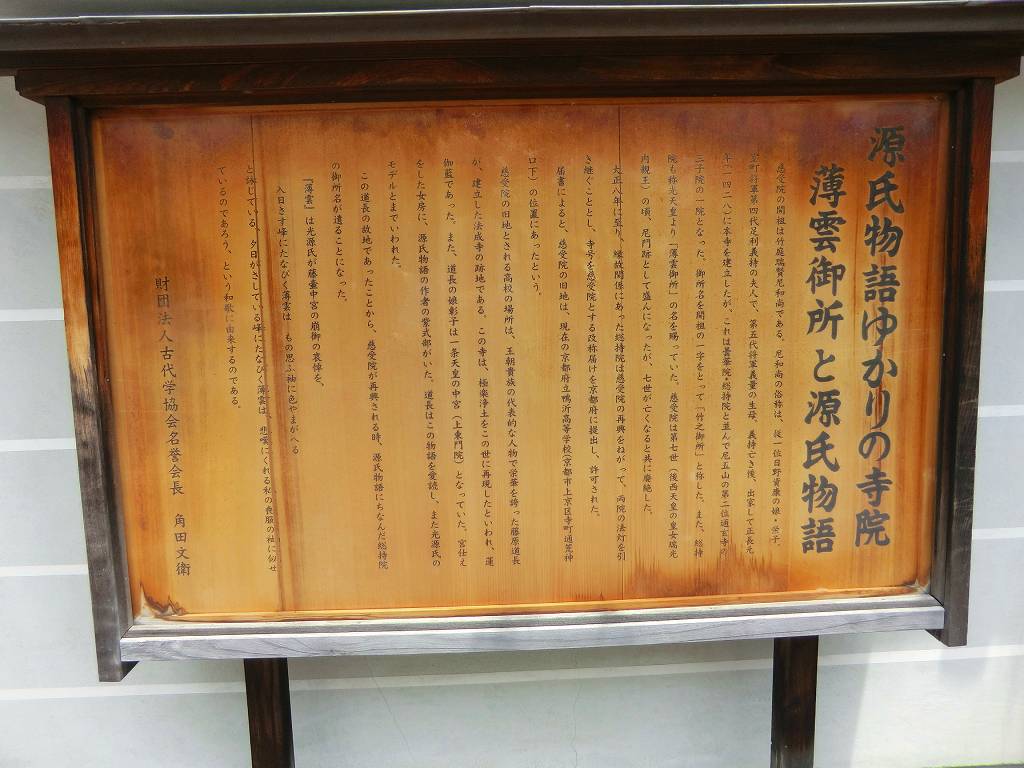 源氏物語ゆかりの寺院
薄雲御所と源氏物語
慈受院の開祖は竹庭瑞賢尼和尚である。尼和尚の俗称は、従一位日野資康の娘・栄子、
室町将軍第四代足利義持の夫人で、第五代将軍義量の生母、義持亡き後、出家して正長元
年(一四二八)に本寺を建立したが、これは曇華院、総持院と並んで尼五山の第二位通玄寺の
三子院の一院となった。御所名を開祖の一字をとって「竹之御所」と称した。また、総持
院も称光天皇より「薄雲御所」の名を賜っていた。慈受院は第七世(後西天皇の皇女瑞光
内親王)の頃、尼門跡として盛んになったが、七世が亡くなると共に廃絶した。
大正八年に至り、縁故関係にあった総持院は慈受院の再興をねがって、両院の法灯を引
き継ぐこととし、寺号を慈受院とする改称届けを京都府に提出し、許可された。
届書によると、慈受院の旧地は、現在の京都府立鴨沂高等学校(京都市上京区寺町通荒神
口下)の位置にあったという。
慈受院の旧地とされる高校の場所は、王朝貴族の代表的な人物で栄華を誇った藤原道長
が、建立した法成寺の跡地である。この寺は、極楽浄土をこの世に再現したといわれ、蓮
伽藍であった。また、道長の娘彰子は一条天皇の中宮(上東門院)となっていた。宮仕え
をした女房に、源氏物語の作者の紫式部がいた。道長はこの物語を愛読し、また光源氏の
モデルとまでいわれた。
この道長の故地であったことから、慈受院が再興される時、源氏物語にちなんだ総持院
の御所名が遺ることになった。
『薄雲』は光源氏が藤壷中宮の崩御の哀悼を、
入日さす峰にたなびく薄雲は もの思ふ袖に色やまがへる
と詠じている、夕日がさしている峰にたなびく薄雲は、悲嘆にくれる私の喪服の袖に似せ
ているのであろう、という和歌に由来するのである。
財団法人古代学協会名誉会長 角田文衞